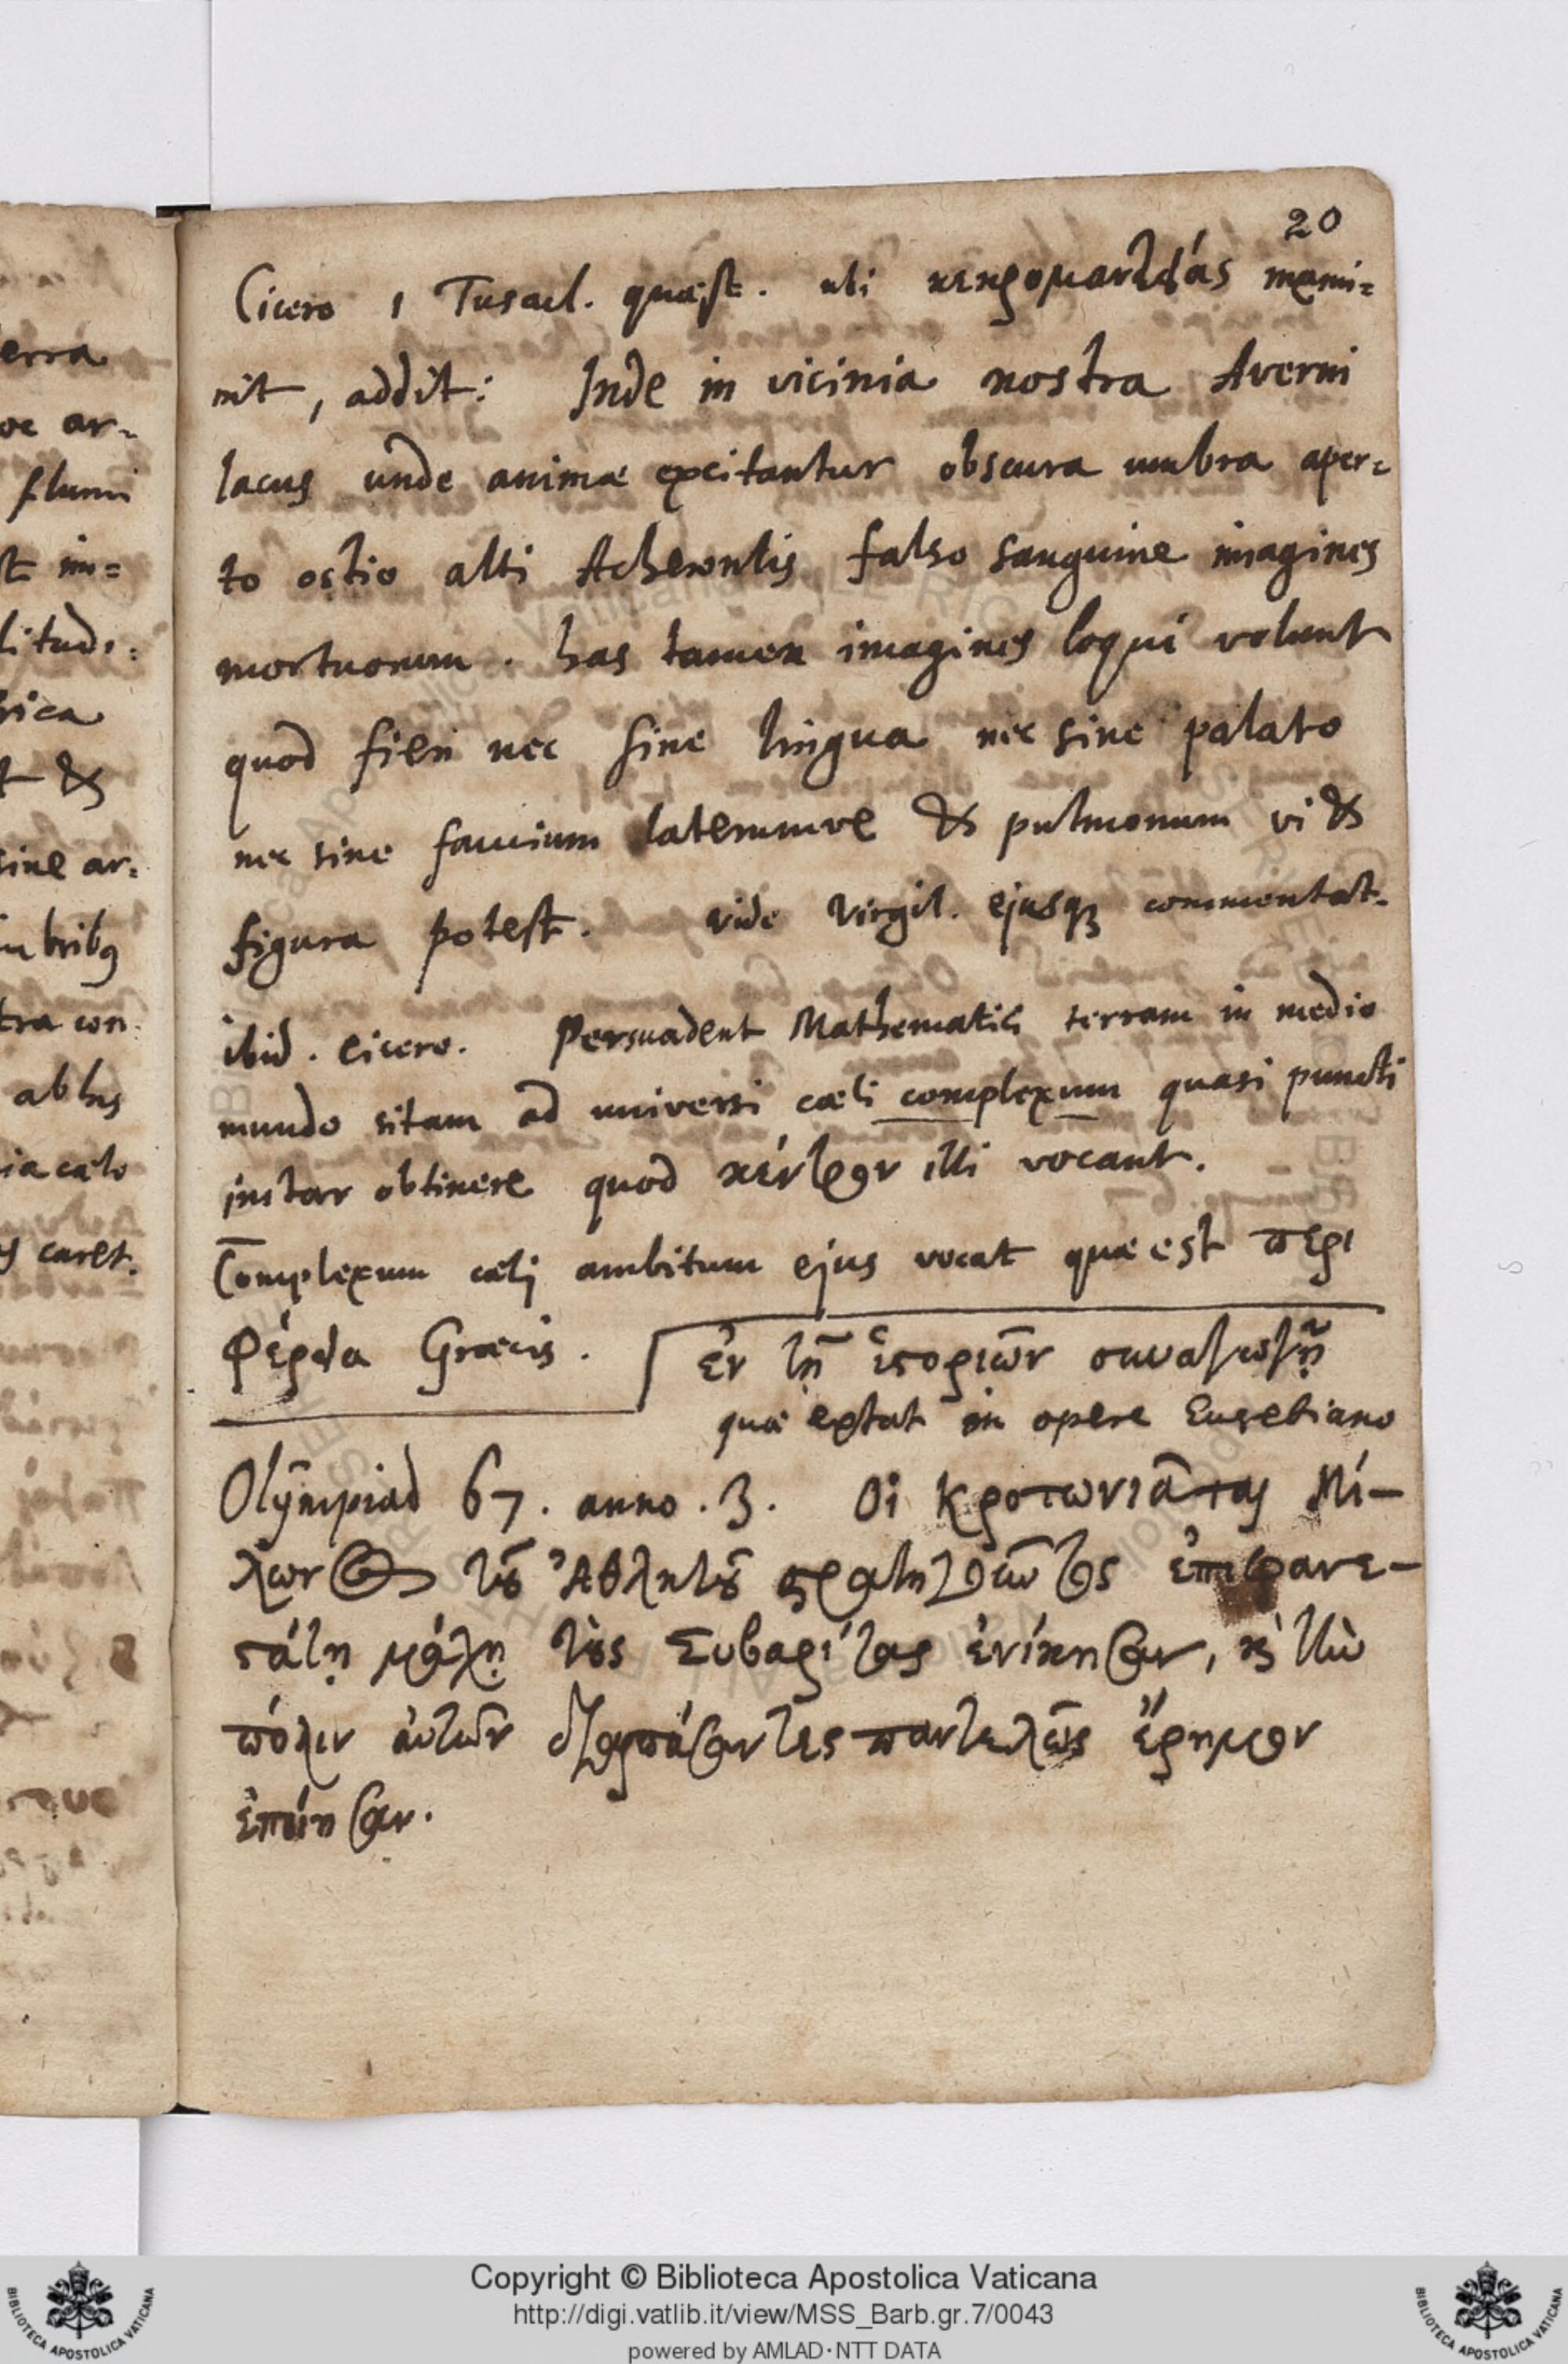 20
Cicero 1 Tuscul. quæst. ubi νεκρομαντείας memi=
nit, addit: Inde in vicinia nostra Averni
lacus unde animæ excitantur obscura umbra aper=
to ostio alti Acherontis falso sanguine imagines
mortuorum. has tamen imagines loqui volunt
quod fieri nec sine lingua nec sine palato
nec sine faucium laterumve & pulmonum vi &
figura potest. vide Virgil. ejusq; commentat.
ibid. cicero. Persuadent Mathematici terram in medio
mundo sitam ad universi cæli complexum quasi puncti
instar obtinere quod κέντρον illi vocant.
Complexum cælj ambitum ejus vocat quæ est περι
φέρεια Græcis. ἐν τῇ ἱστοριῶν συναγωγῇ
quæ extat in opere Eusebiano
Olympiad 67. anno. 3. Οἱ Κροτωνιᾶται Μί-
λωνος τοῦ Ἀθλητοῦ στρατηγοῦντος ἐπιφανε-
στάτῃ μάχῃ τοὺς Συβαρίτας ἐνίκησαν, καὶ τὴν
πόλιν αὐτῶν διαρπάσαντες παντελῶς ἔρημον
ἐποίησαν.
erra
oc ar-
flumi
t im=
litudi:
rica
t &
sine ar:
tra con
ab his
ia cælo
caret.
Copyright © Biblioteca Apostolica Vaticana
http://digi.vatlib.it/view/MSS_Barb.gr.7/0043
powered by AMLAD·NTT DATA
BIBLIOTECA APOSTOLICA VATICANA
BIBLIOTECA APOSTOLICA VATICANA